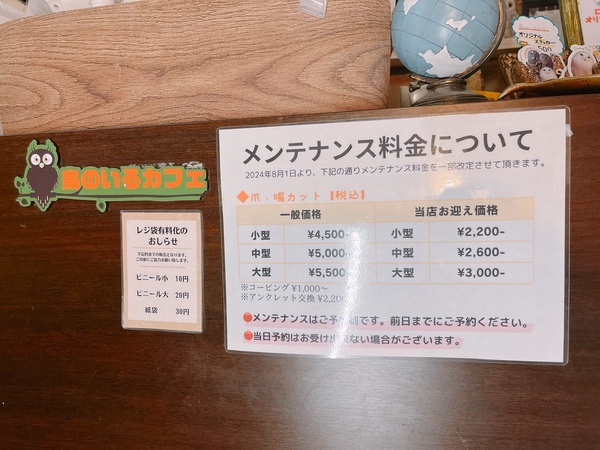 オリジナル
ステッカー
500
鳥のいるカフェ
レジ袋有料化の
おしらせ
下記料金での販売となります。
ご理解にご協力お願い致します。
ビニール小 10円
ビニール大 20円
紙袋 30円
メンテナンス料金について
2024年8月1日より、下記の通りメンテナンス料金を一部改定させて頂きます。
◆爪・嘴カット【税込】
一般価格 当店お迎え価格
小型 ¥4,500- 小型 ¥2,200-
中型 ¥5,000- 中型 ¥2,600-
大型 ¥5,500- 大型 ¥3,000-
※コーピング ¥1,000〜
※アンクレット交換 ¥2,200
メンテナンスはご予約制です。前日までにご予約ください。
当日予約はお受け出来ない場合がございます。